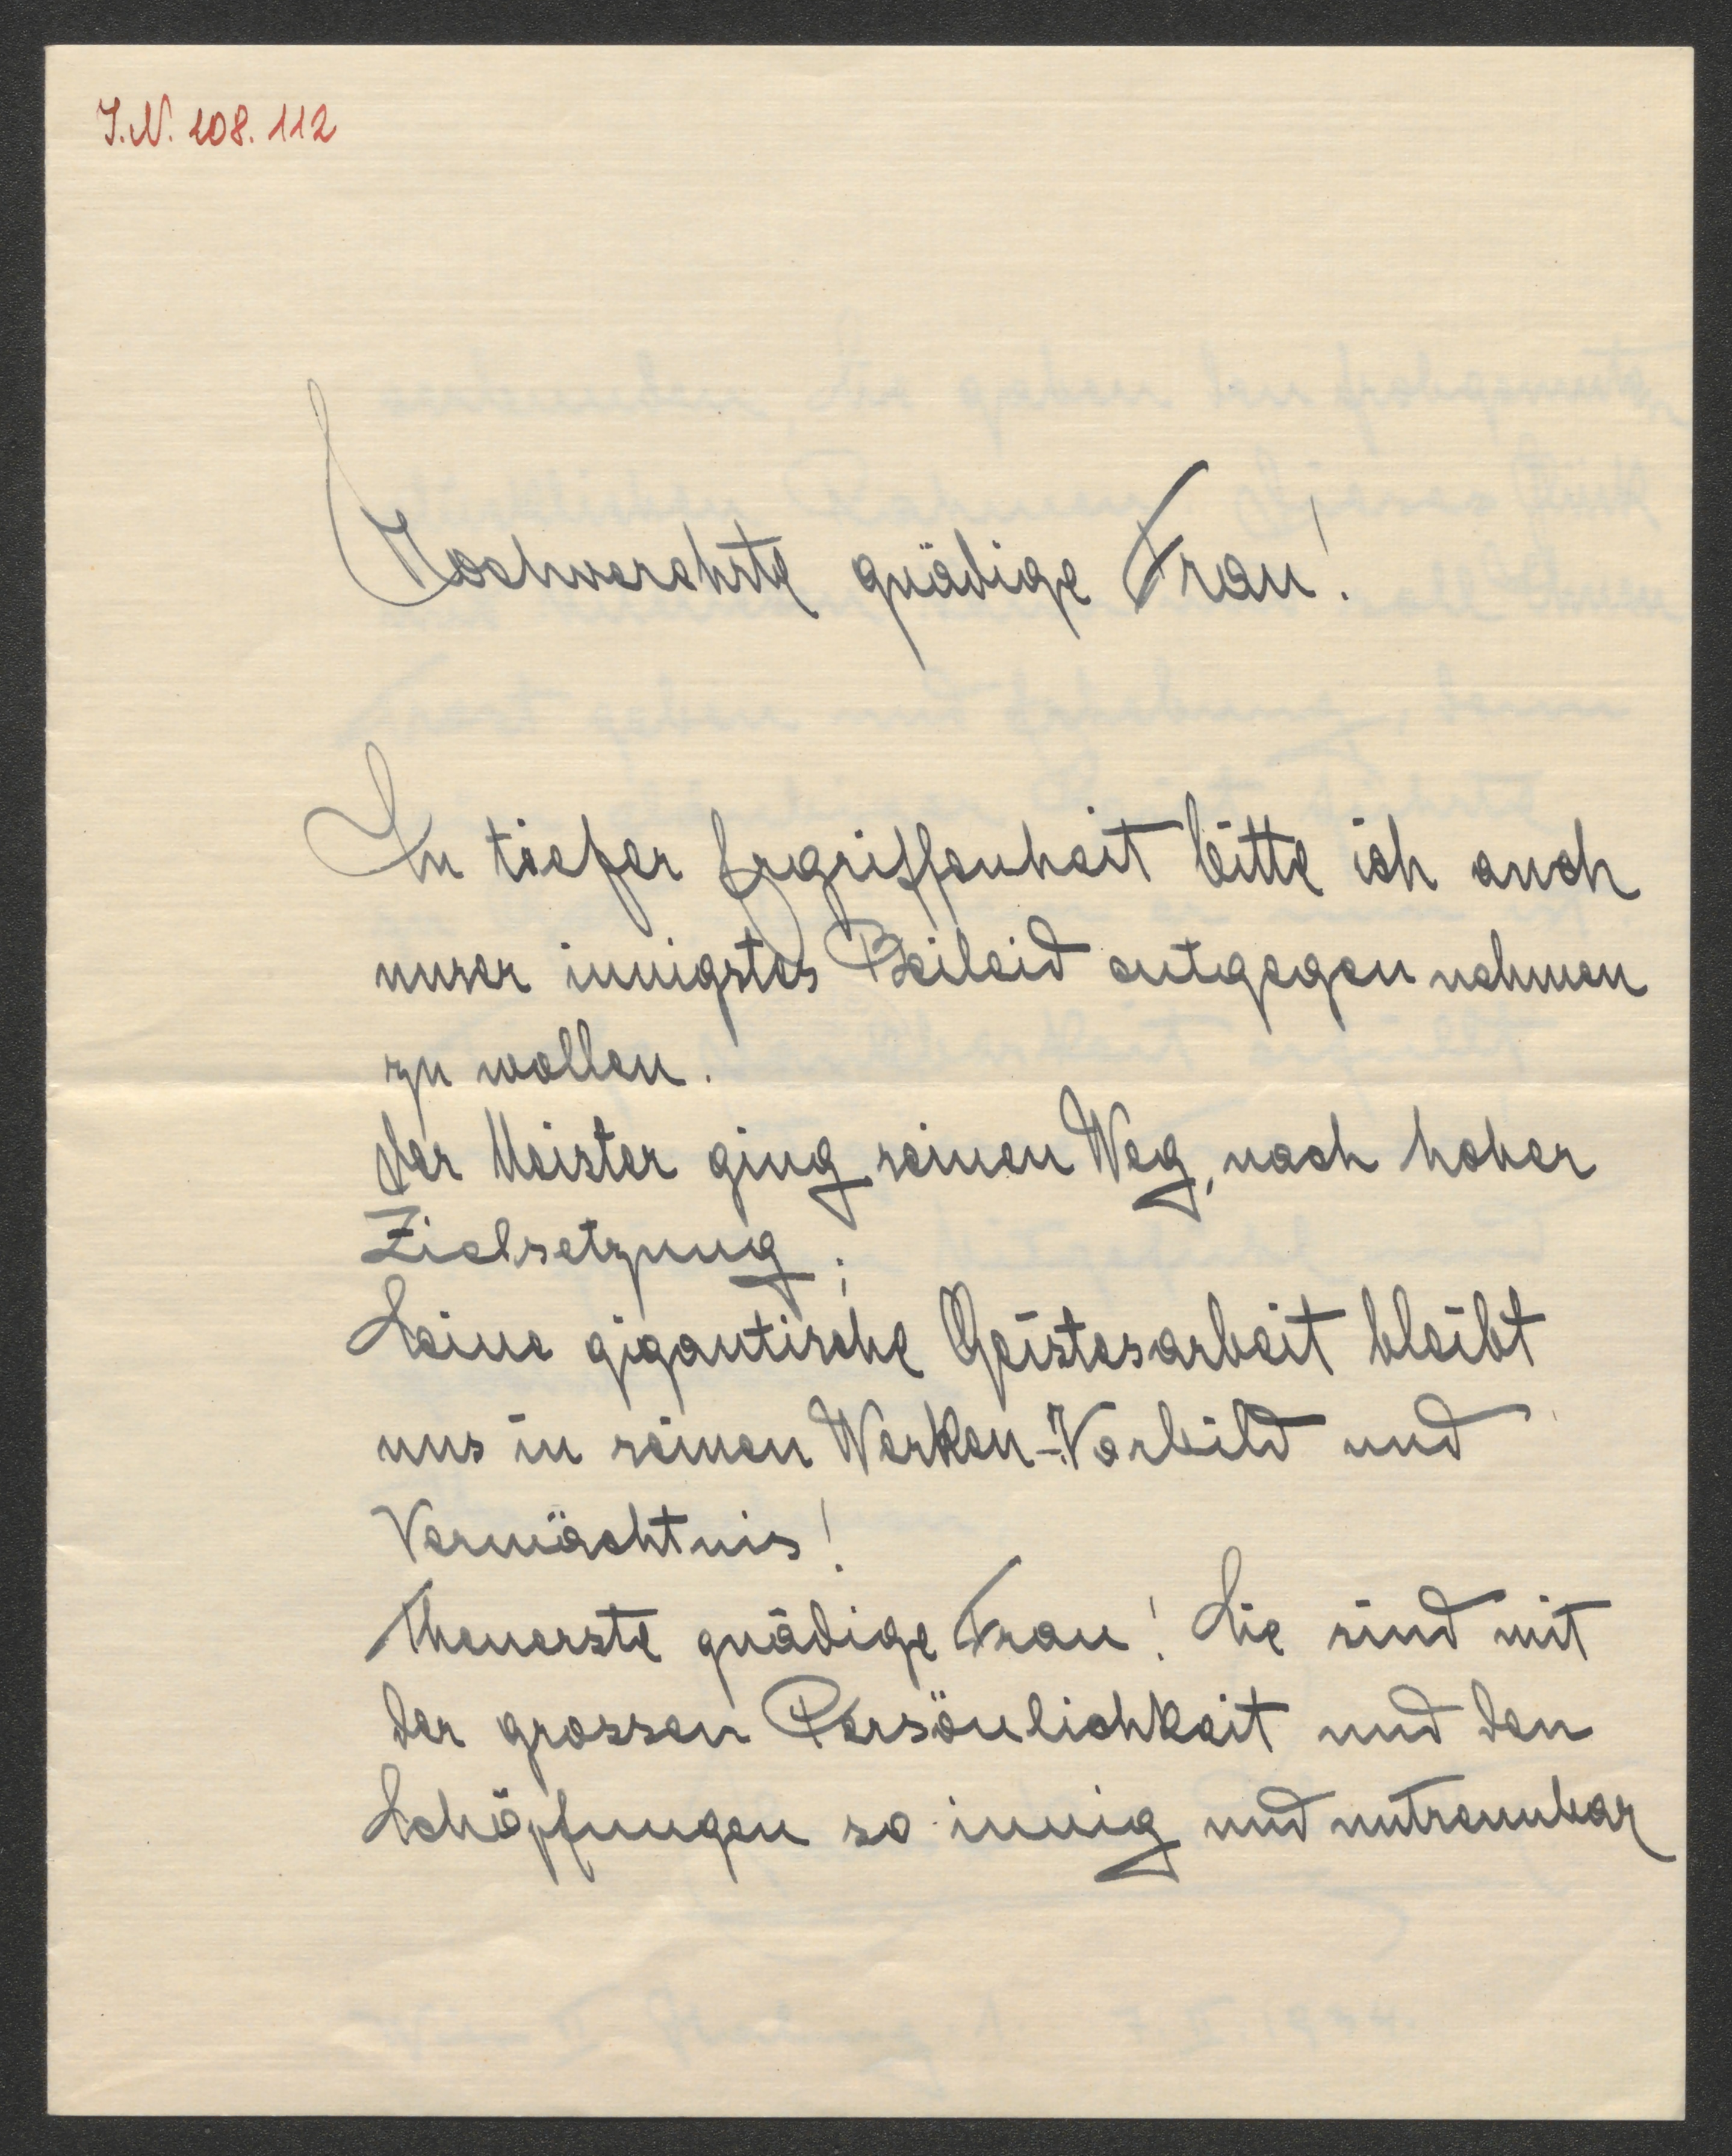 J.N. 208.112
Hochverehrte gnädige Frau!
In tiefer Ergriffenheit bitte ich auch
unser innigstes Beileid entgegen nehmen
zu wollen.
Der Meister ging seinen Weg, nach hoher
Zielsetzung;
Seine gigantische Geistesarbeit bleibt
uns in seinen Werken-Vorbild und
Vermächtnis!
Theuerste gnädige Frau! Sie sind mit
der grossen Persönlichkeit und den
Schöpfungen so innig und untrennbar